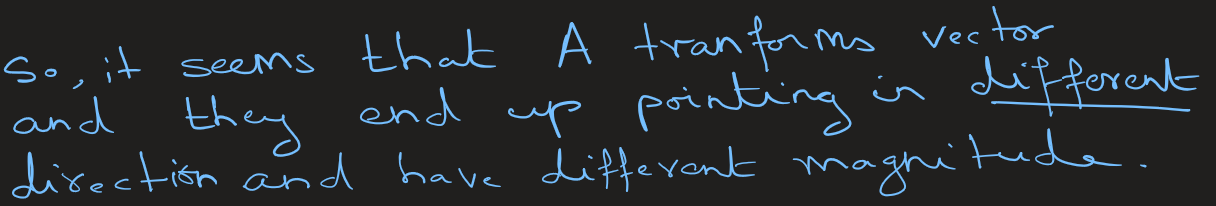 So, it seems that A tranforms vector
and they end up pointing in different
direction and have different magnitude.